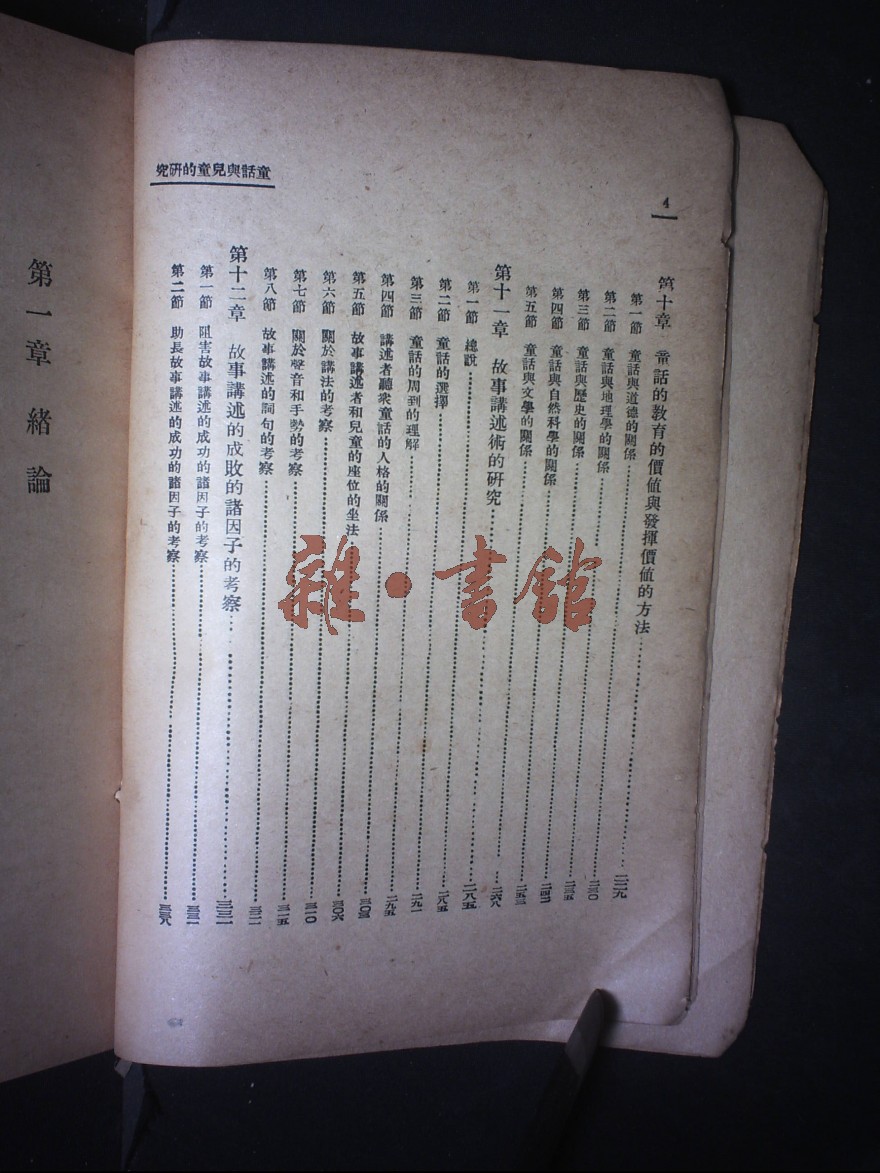 童話與兒童的研究
4
第十章 童話的教育的價值與發揮價值的方法……二二九
第一節 童話與道德的關係……二三〇
第二節 童話與地理學的關係……二三五
第三節 童話與歷史的關係……二四一
第四節 童話與自然科學的關係……二五三
第五節 童話與文學的關係……二六八
第十一章 故事講述術的研究……二八五
第一節 總說……二八五
第二節 童話的選擇……二九一
第三節 童話的周到的理解……二九五
第四節 講述者聽衆童話的人格的關係……三〇三
第五節 故事講述者和兒童的座位的坐法……三〇六
第六節 關於講法的考察……三一〇
第七節 關於聲音和手勢的考察……三一五
第八節 故事講述的詞句的考察……三二一
第十二章 故事講述的成敗的諸因子的考察……三三一
第一節 阻害故事講述的成功的諸因子的考察……三三一
第二節 助長故事講述的成功的諸因子的考察……三三八
第一章 緒論
雜·書館